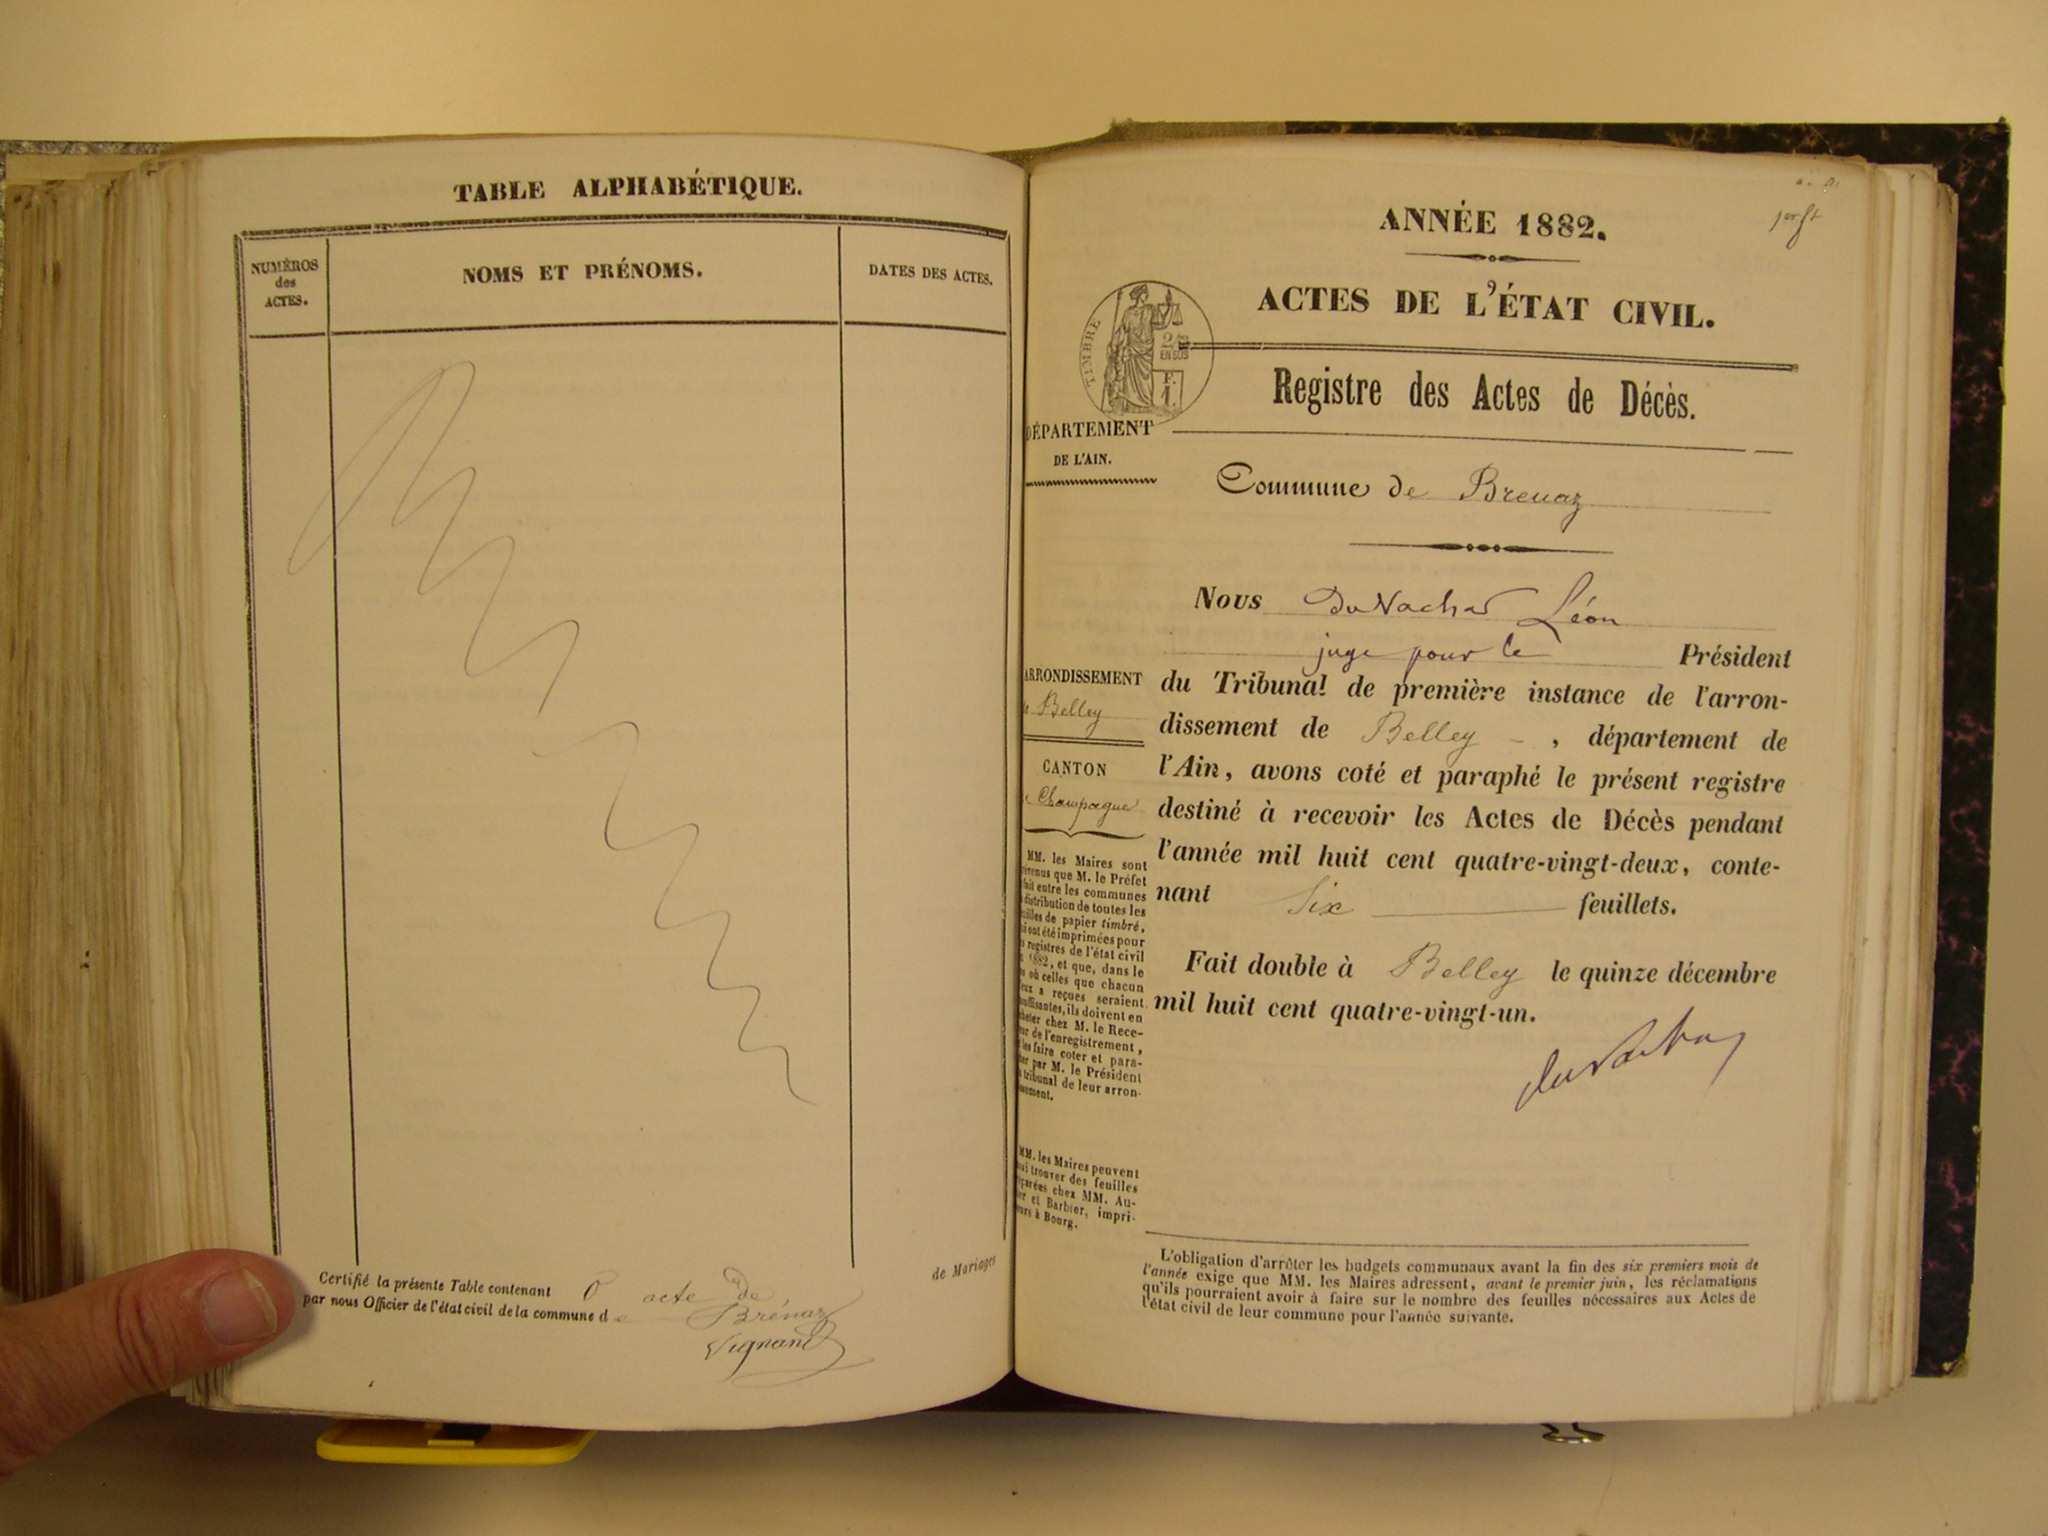 TABLE ALPHABÉTIQUE.
NUMÉROS
des
ACTES.
NOMS ET PRÉNOMS.
DATES DES ACTES.
Certifié la présente Table contenant 0 acte de
de Mariages
par nous Officier de l'état civil de la commune de Brénaz
Vignand
1er ft
ANNÉE 1882.
ACTES DE L'ÉTAT CIVIL.
TIMBRE
2/10
EN SUS
F.
1.
Registre des Actes de Décès.
DÉPARTEMENT
DE L'AIN.
Commune de Brenaz
Nous Léon
juge pour le Président
du Tribunal de première instance de l'arron-
dissement de Belley, département de
l'Ain, avons coté et paraphé le présent registre
destiné à recevoir les Actes de Décès pendant
l'année mil huit cent quatre-vingt-deux, conte-
nant Six feuillets.
Fait double à Belley le quinze décembre
mil huit cent quatre-vingt-un.
ARRONDISSEMENT
Belley
CANTON
Champagne
MM. les Maires sont
que M. le Préfet
fait entre les communes
distribution de toutes les
de papier timbré,
ont été imprimées pour
registres de l'état civil
1882, et que, dans le
où celles que chacun
a reçues seraient
ils doivent en
chez M. le Rece-
de l'enregistrement,
les faire coter et para-
par M. le Président
tribunal de leur arron-
MM. les Maires peuvent
trouver des feuilles
chez MM. Au-
et Barbier, impri-
à Bourg.
L'obligation d'arrêter les budgets communaux avant la fin des six premiers mois de
l'année exige que MM. les Maires adressent, avant le premier juin, les réclamations
qu'ils pourraient avoir à faire sur le nombre des feuilles nécessaires aux Actes de
l'état civil de leur commune pour l'année suivante.